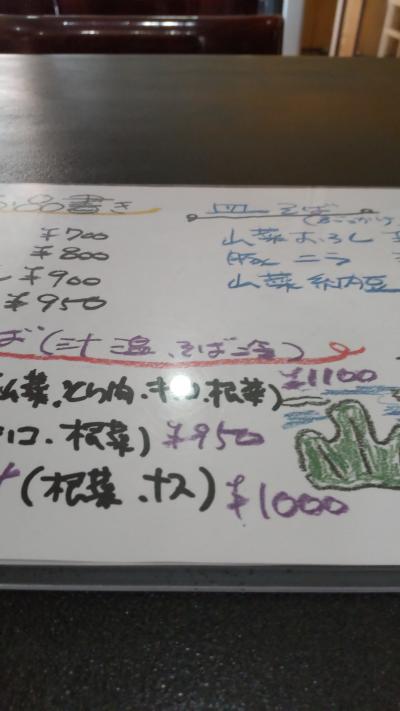 お品書き
¥700
¥800
¥900
¥950
皿そば
山菜おろし
山菜 納豆
ば(汁温、そば冷)
山菜、とり肉、キノコ、根菜) ¥1100
ノコ、根菜) ¥950
(根菜、ナス) ¥1000